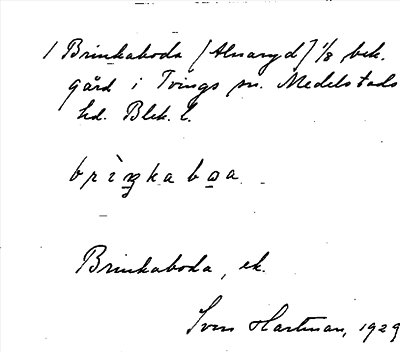 1 Brinkaboda [Alnaryd] 1/8 bek.
gård i Tvings sn. Medelstads
hd. Blek. l.
brìŋkaboa
Brinkaboda, ek.
Sven Hartman, 1929